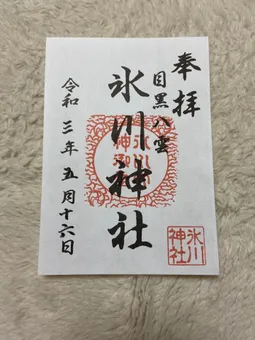 奉拝
目黒八雲
氷川神社
令和三年五月十六日
氷川
神社